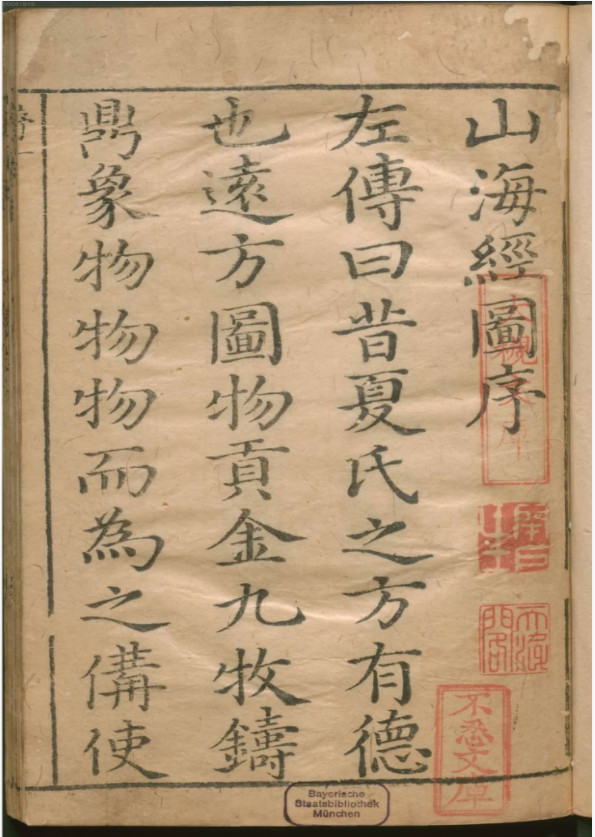 山海經圖序
左傳曰昔夏氏之方有德
也遠方圖物貢金九牧鑄
鼎象物物物而為之備使
不忍文庫
Bayerische
Staatsbibliothek
München